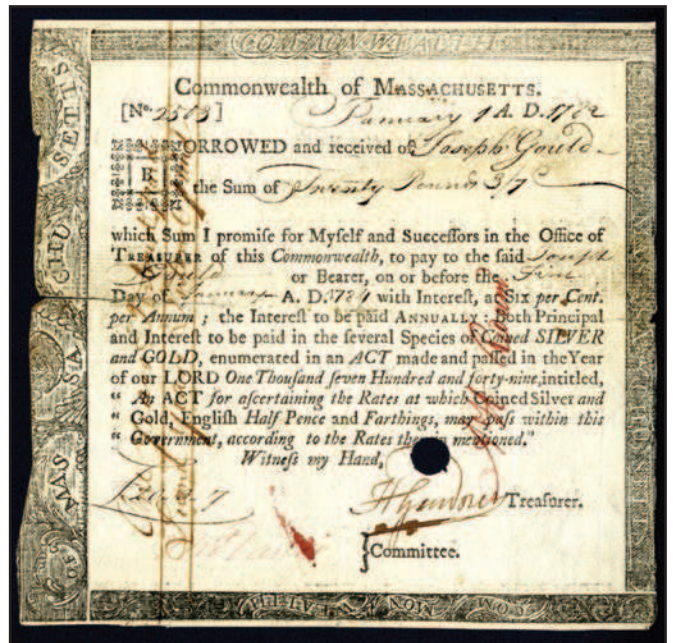 COMMONWEALTH
Commonwealth of MASSACHUSETTS.
[No. 2503] January 1 A. D. 1782
BORROWED and received of Joseph Gould
the Sum of Twenty Pounds 3/7
which Sum I promiſe for Myſelf and Succeſſors in the Office of
TREASURER of this Commonwealth, to pay to the ſaid Joseph
Gould or Bearer, on or before the Firſt
Day of January A. D. 1784 with Intereſt, at Six per Cent.
per Annum ; the Intereſt to be paid ANNUALLY : Both Principal
and Intereſt to be paid in the ſeveral Species of Coined SILVER
and GOLD, enumerated in an ACT made and paſſed in the Year
of our LORD One Thouſand ſeven Hundred and forty-nine, intitled,
“ An ACT for aſcertaining the Rates at which Coined Silver and
“ Gold, Engliſh Half Pence and Farthings, may paſs within this
“ Government, according to the Rates therein mentioned."
Witneſs my Hand,
Treaſurer.
Committee.
OF MASSACHUSETTS
COMMONWEALTH